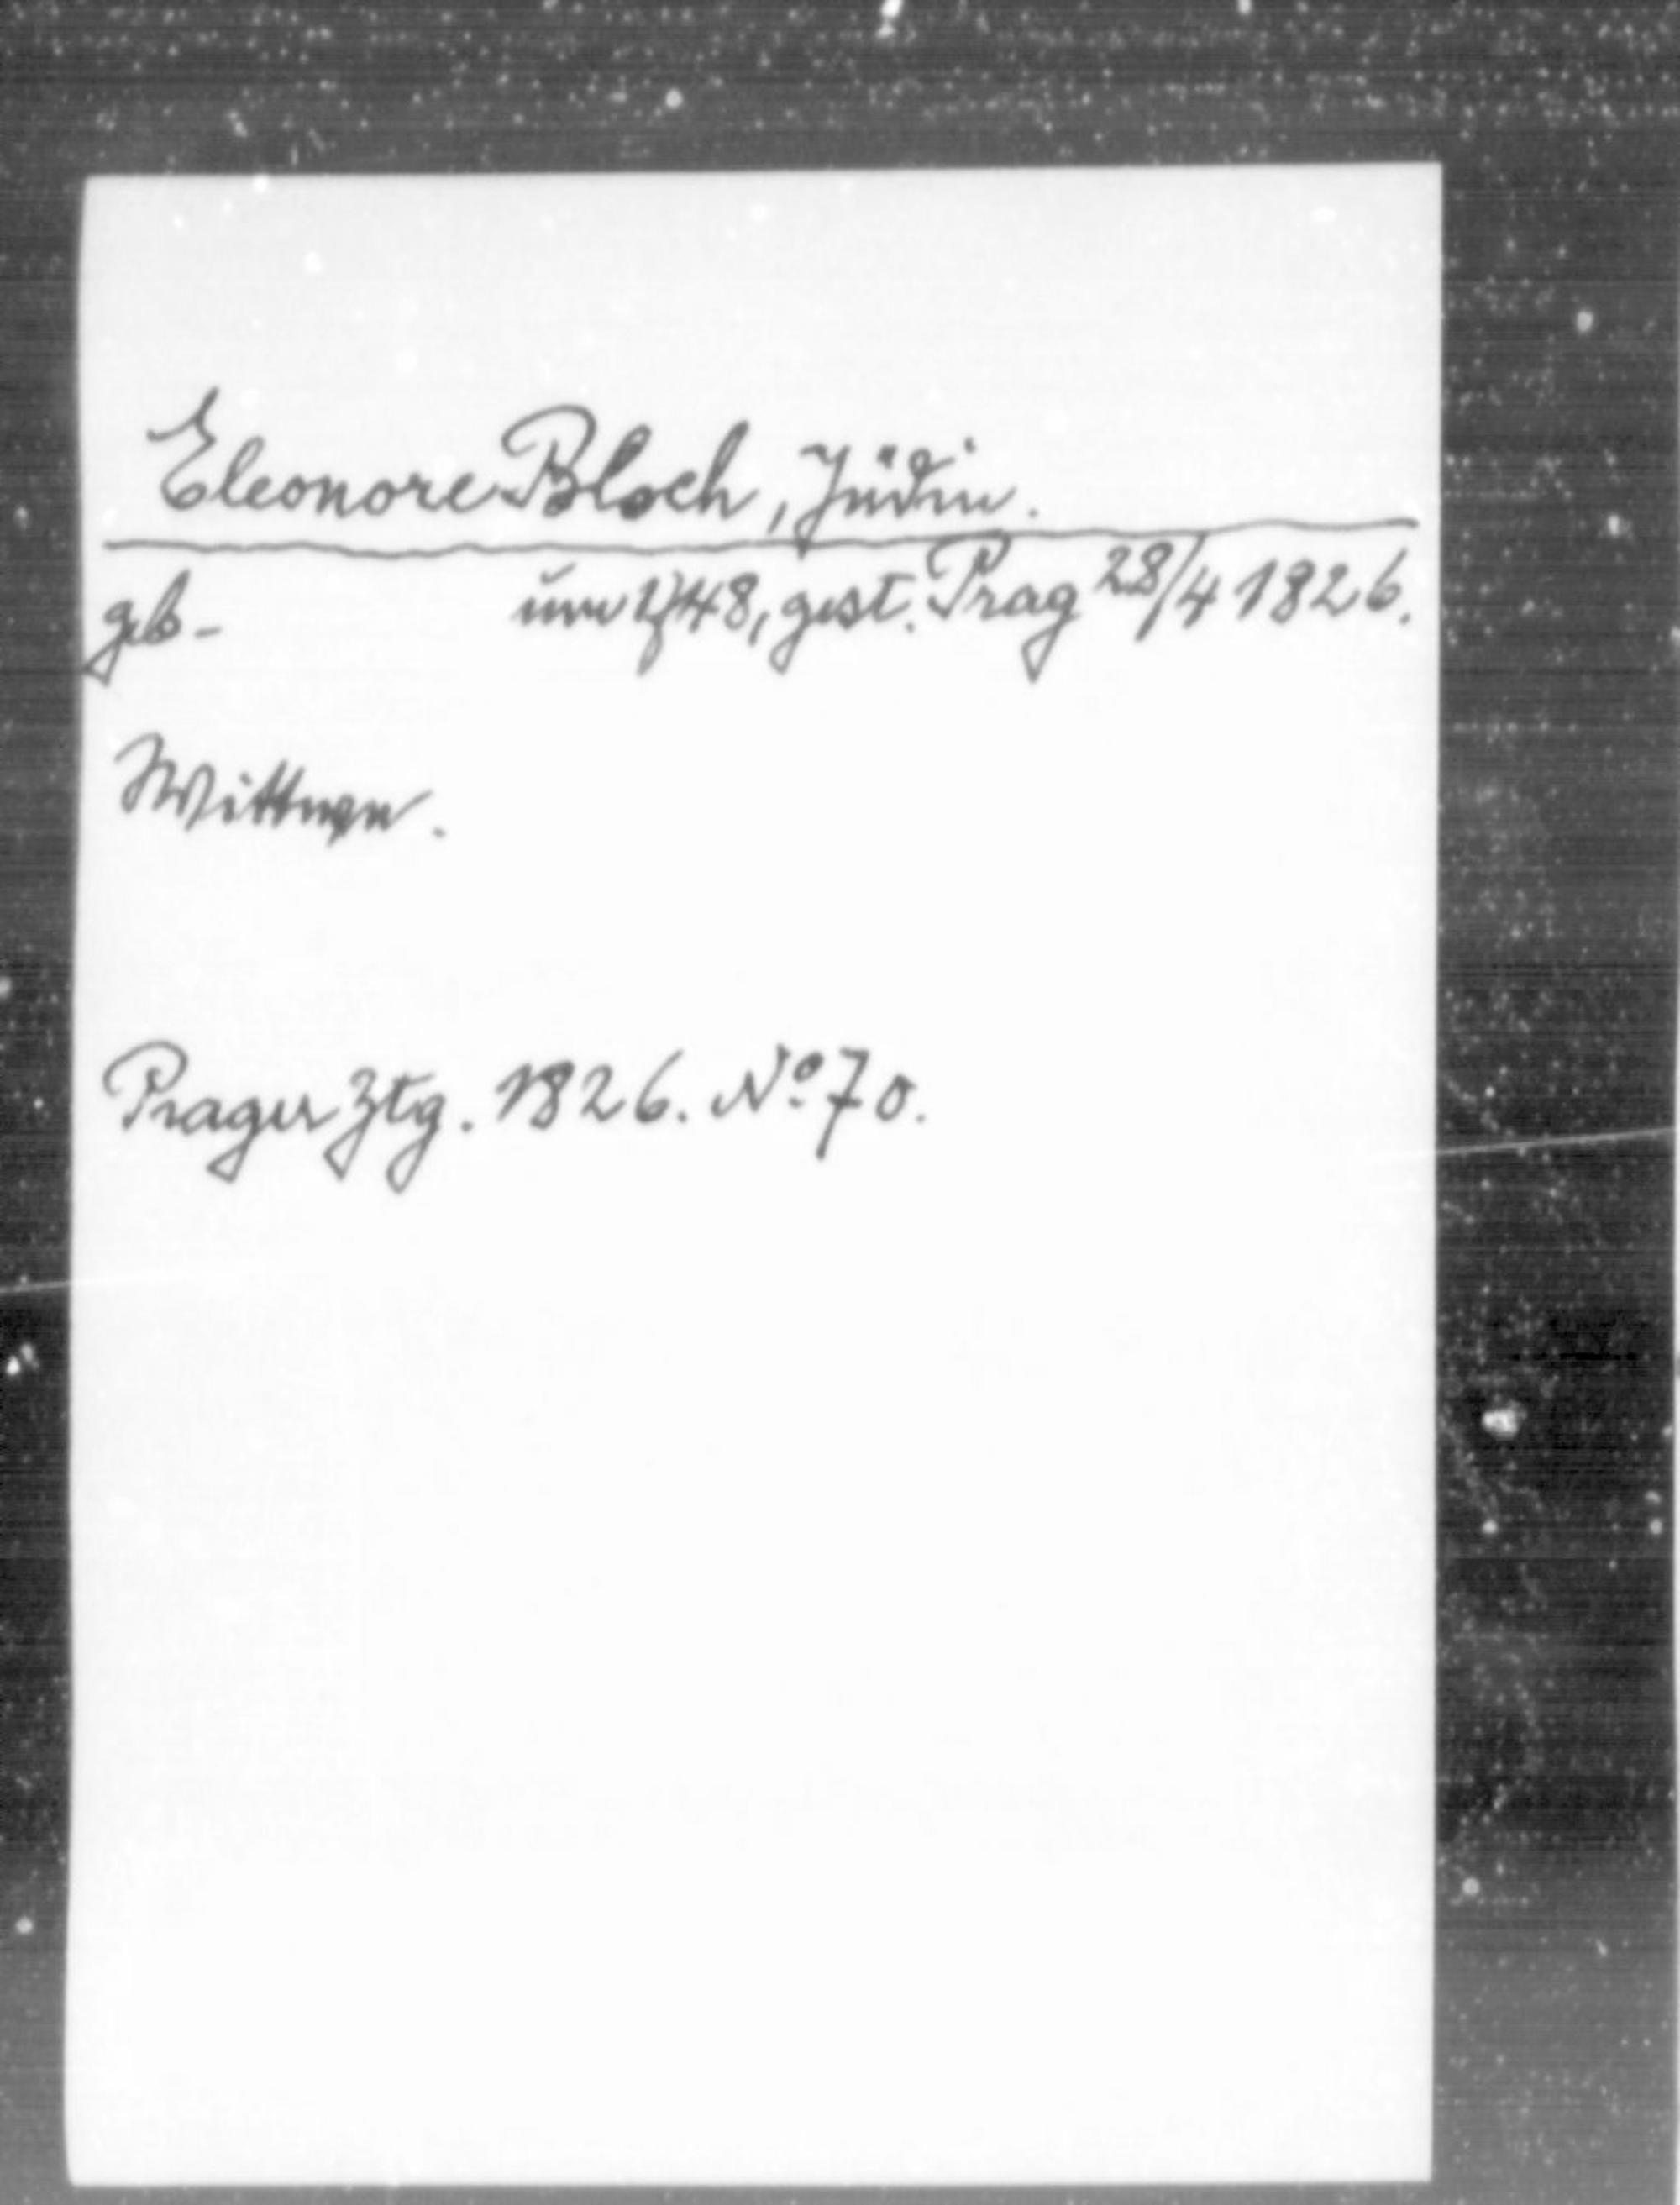 Eleonore Bloch, Jüdin.
geb. um 1748, gest. Prag 28/4 1826.
Wittwe.
Prager Ztg. 1826. No. 70.